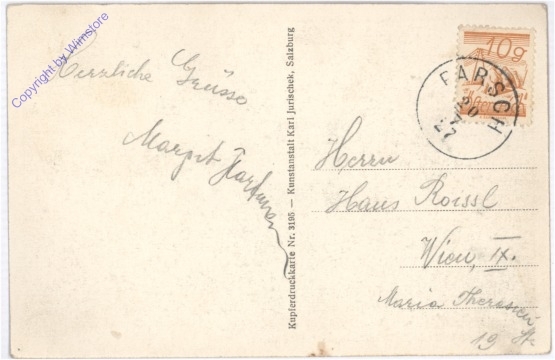 Copyright by Wimstore
Herzliche Grüsse
Margit
Kupferdruckkarte Nr. 3195 — Kunstanstalt Karl Jurischek, Salzburg
10g
FARSCH
20
27
Herrn
Hans Roissl
Wien, IX.
Maria Theresien
19